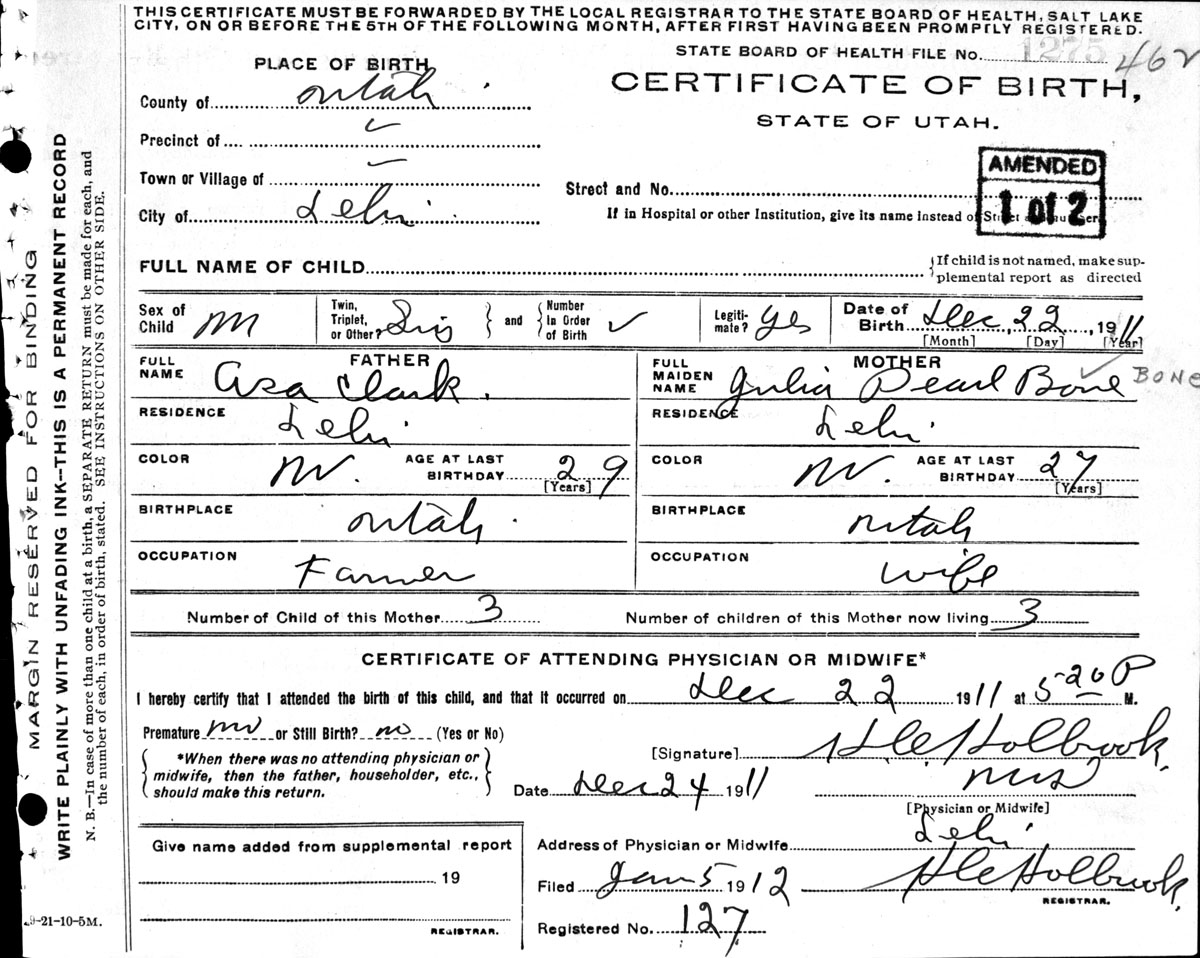 THIS CERTIFICATE MUST BE FORWARDED BY THE LOCAL REGISTRAR TO THE STATE BOARD OF HEALTH, SALT LAKE
CITY, ON OR BEFORE THE 5TH OF THE FOLLOWING MONTH, AFTER FIRST HAVING BEEN PROMPTLY REGISTERED.
STATE BOARD OF HEALTH FILE No. 1275 462
PLACE OF BIRTH
CERTIFICATE OF BIRTH,
STATE OF UTAH.
County of Utah
Precinct of ✓
Town or Village of ✓
City of Lehi
Street and No.
If in Hospital or other Institution, give its name instead of
AMENDED
1 of 2
FULL NAME OF CHILD
If child is not named, make sup-
plemental report as directed
Sex of Child M
Twin, Triplet, or Other? Sing and Number In Order of Birth ✓
Legiti- mate? Yes
Date of Birth Dec 22, 1911
[Month] [Day] [Year]
FATHER
FULL NAME Asa Clark.
RESIDENCE Lehi
COLOR W. AGE AT LAST BIRTHDAY 29
[Years]
BIRTHPLACE Utah
OCCUPATION Farmer
MOTHER
FULL MAIDEN NAME Julia Pearl Bone ✓ BONE
RESIDENCE Lehi
COLOR W. AGE AT LAST BIRTHDAY 27
[Years]
BIRTHPLACE Utah
OCCUPATION Wife
Number of Child of this Mother 3 Number of children of this Mother now living 3
CERTIFICATE OF ATTENDING PHYSICIAN OR MIDWIFE*
I hereby certify that I attended the birth of this child, and that it occurred on Dec 22 1911 at 5 20 P M.
Premature no or Still Birth? no (Yes or No)
*When there was no attending physician or
midwife, then the father, householder, etc.,
should make this return.
[Signature] Holbrook,
Date Dec 24 1911
[Physician or Midwife]
Address of Physician or Midwife Lehi
Give name added from supplemental report
19
REGISTRAR.
Filed Jan 5 1912 Holbrook,
REGISTRAR.
Registered No. 127
9-21-10-5M.
MARGIN RESERVED FOR BINDING
WRITE PLAINLY WITH UNFADING INK—THIS IS A PERMANENT RECORD
N. B.—In case of more than one child at a birth, a SEPARATE RETURN must be made for each, and
the number of each, in order of birth, stated. SEE INSTRUCTIONS ON OTHER SIDE.